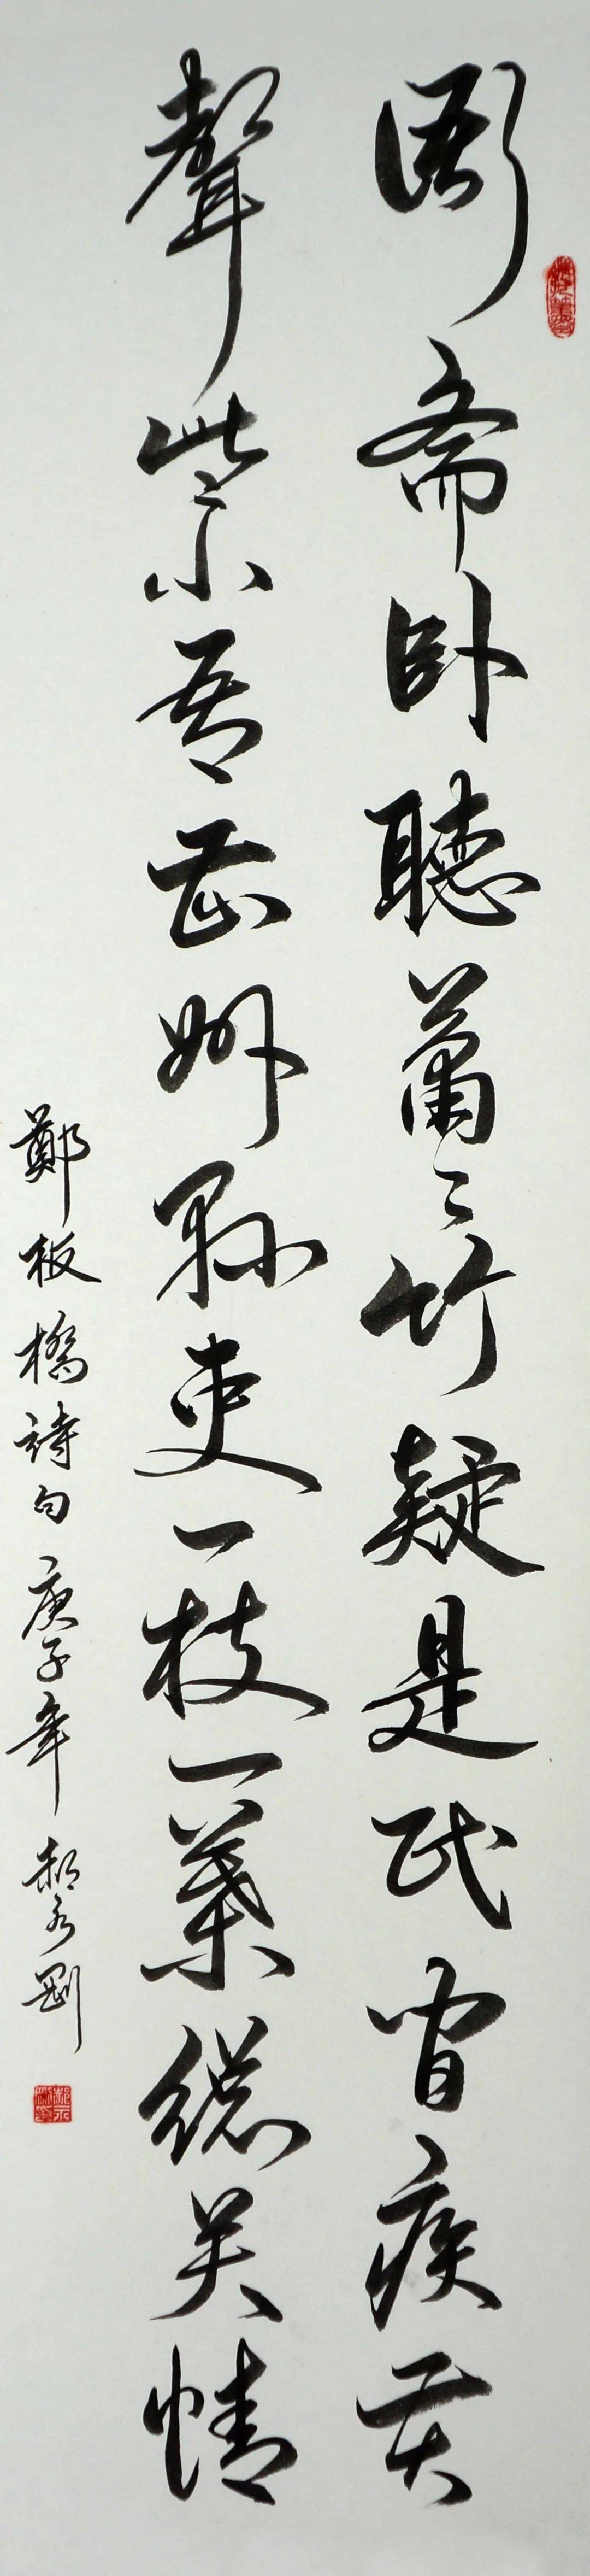 衙斋卧聽蕭〻竹疑是民間疾苦
聲些小吾曹州縣吏一枝一葉總关情
鄭板橋詩句庚子年郝永剛